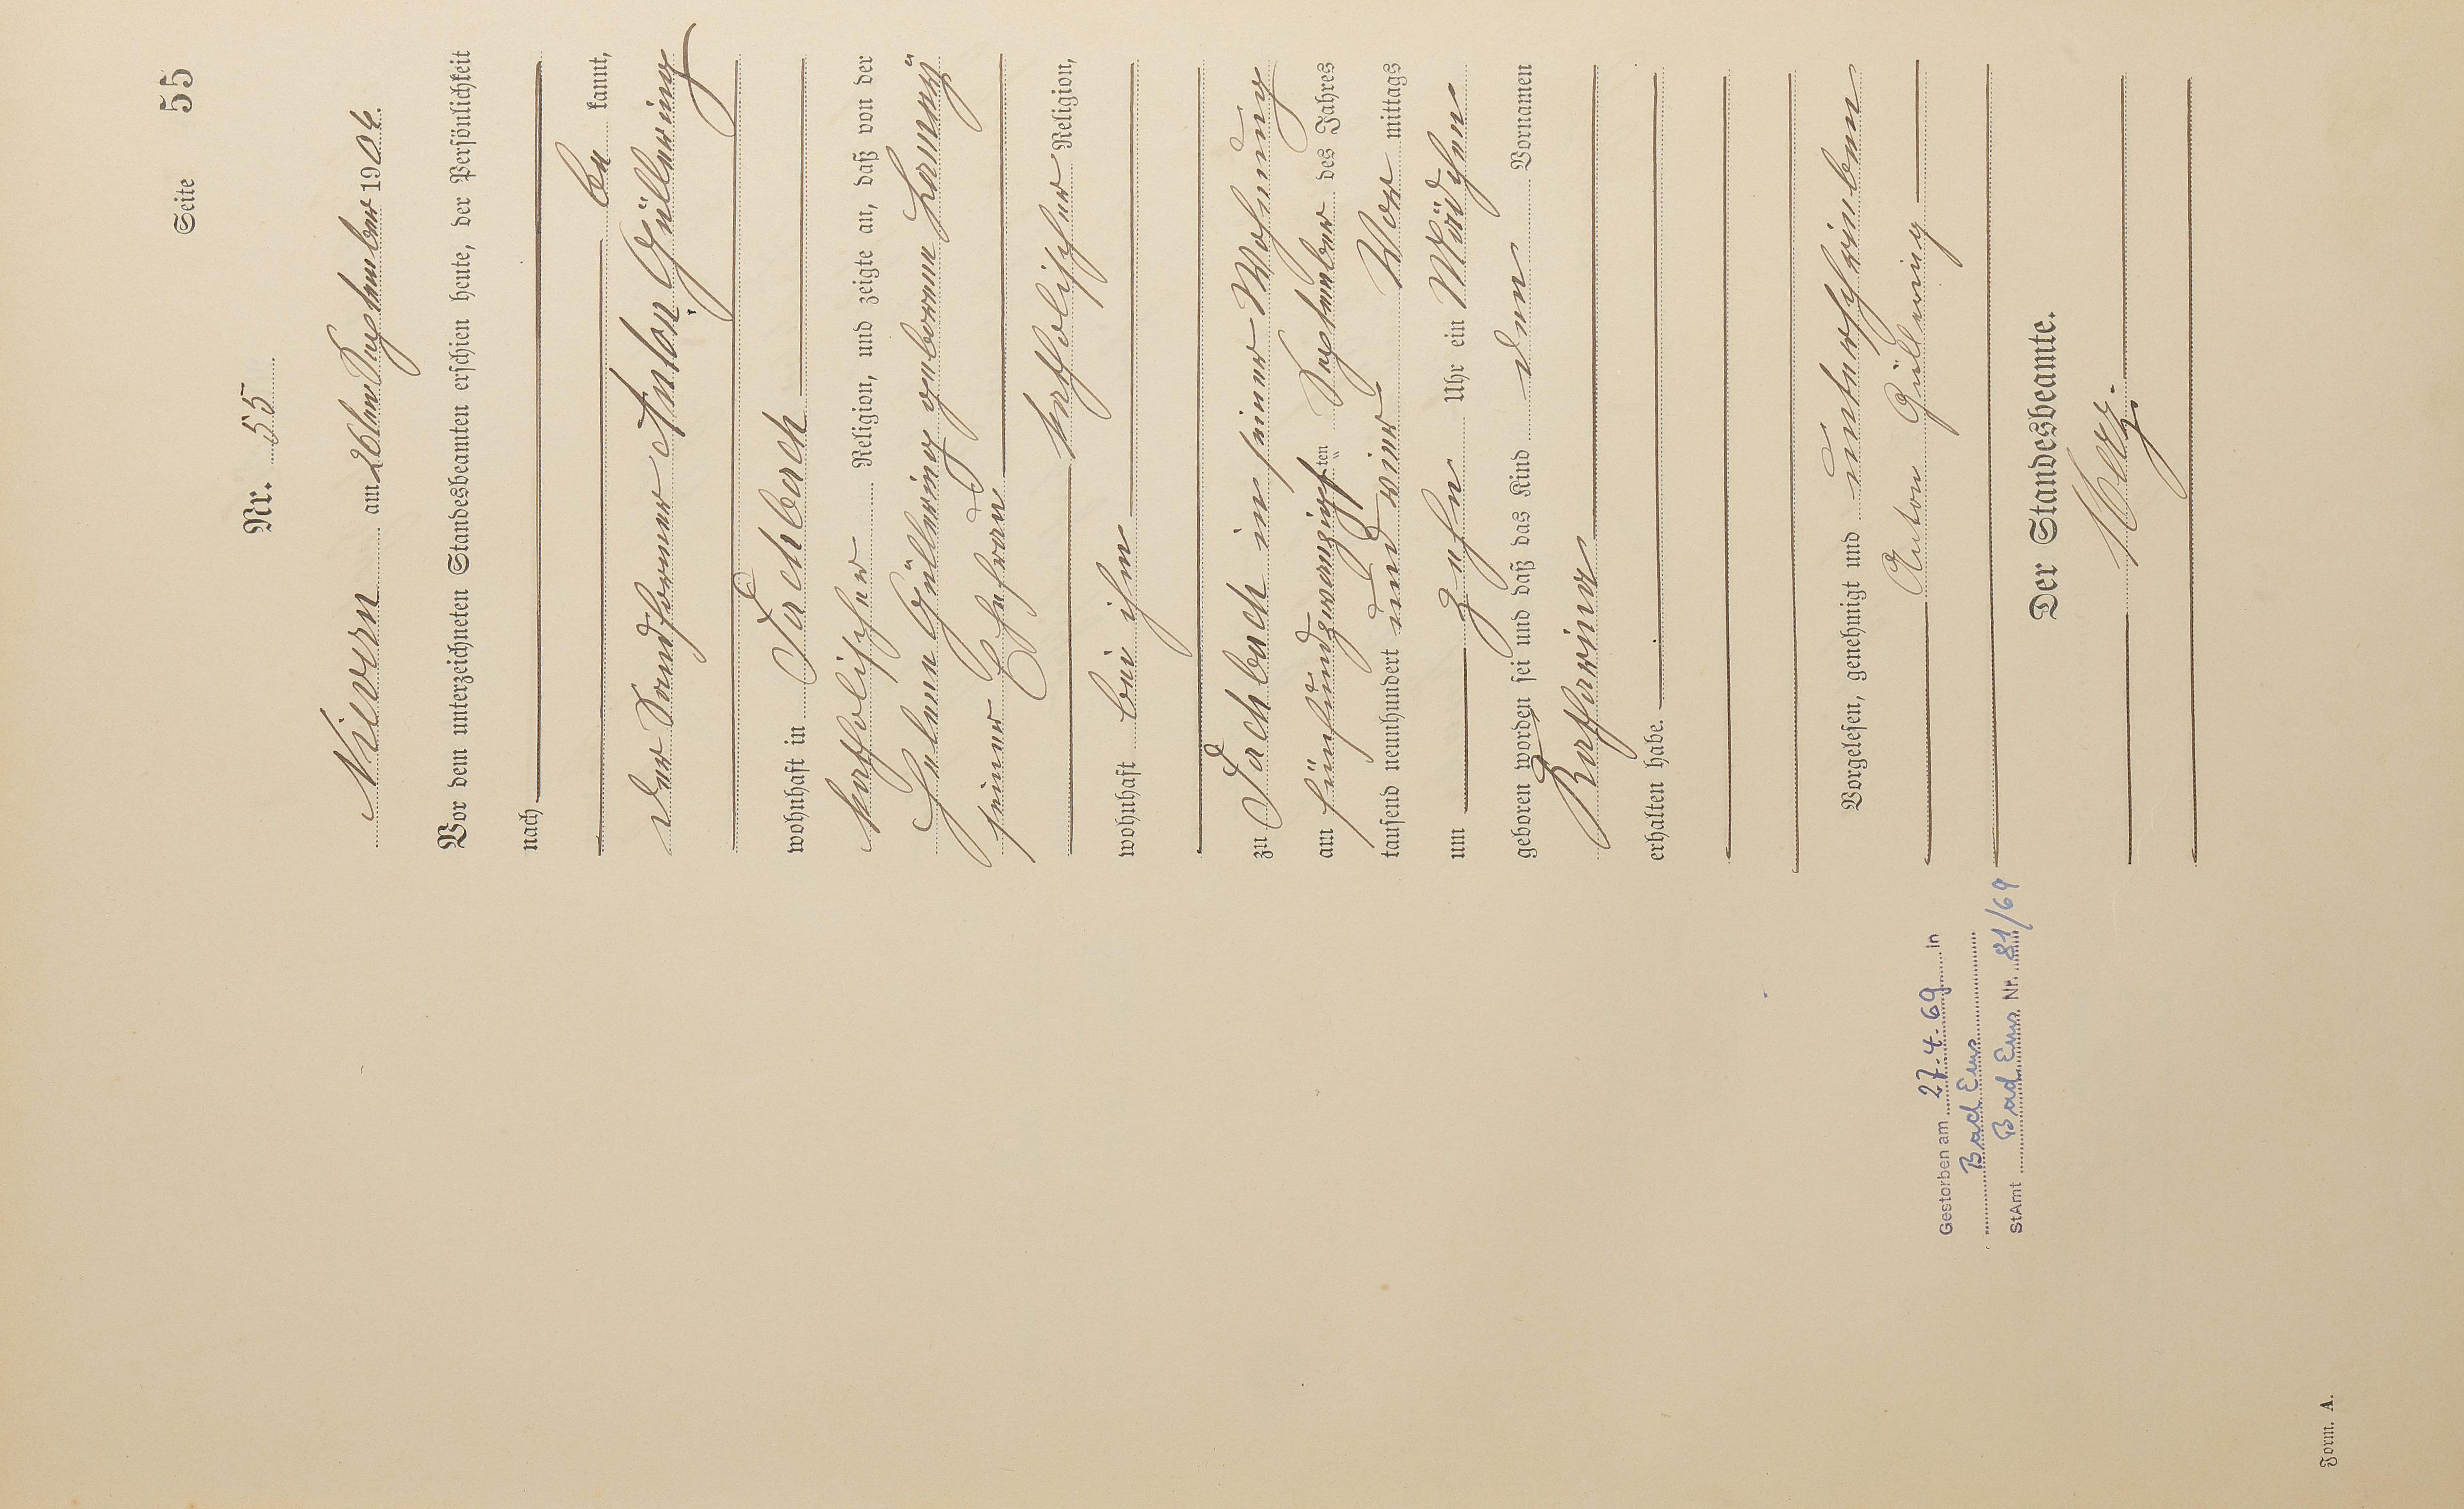 Seite 55
Nr. 55
Nievern am 26ten September 1904.
Vor dem unterzeichneten Standesbeamten erschien heute, der Persönlichkeit
nach
be kannt,
der Sandformer Anton Güllering
wohnhaft in Fachbach
katholischer Religion, und zeigte an, daß von der
Helene Güllering geborenen
seiner Ehefrau
katholischer Religion,
wohnhaft bei ihm
zu Fachbach in seiner Wohnung
am fünfundzwanzigsten September des Jahres
tausend neunhundert und vier Vor mittags
um zehn Uhr ein Mädchen
geboren worden sei und daß das Kind den Vornamen
Katharina
erhalten habe.
Vorgelesen, genehmigt und unterschrieben
Anton Güllering
Der Standesbeamte.
Gestorben am 27.4.69 in
Bad Ems
StAmt Bad Ems Nr. 81/69
Form. A.